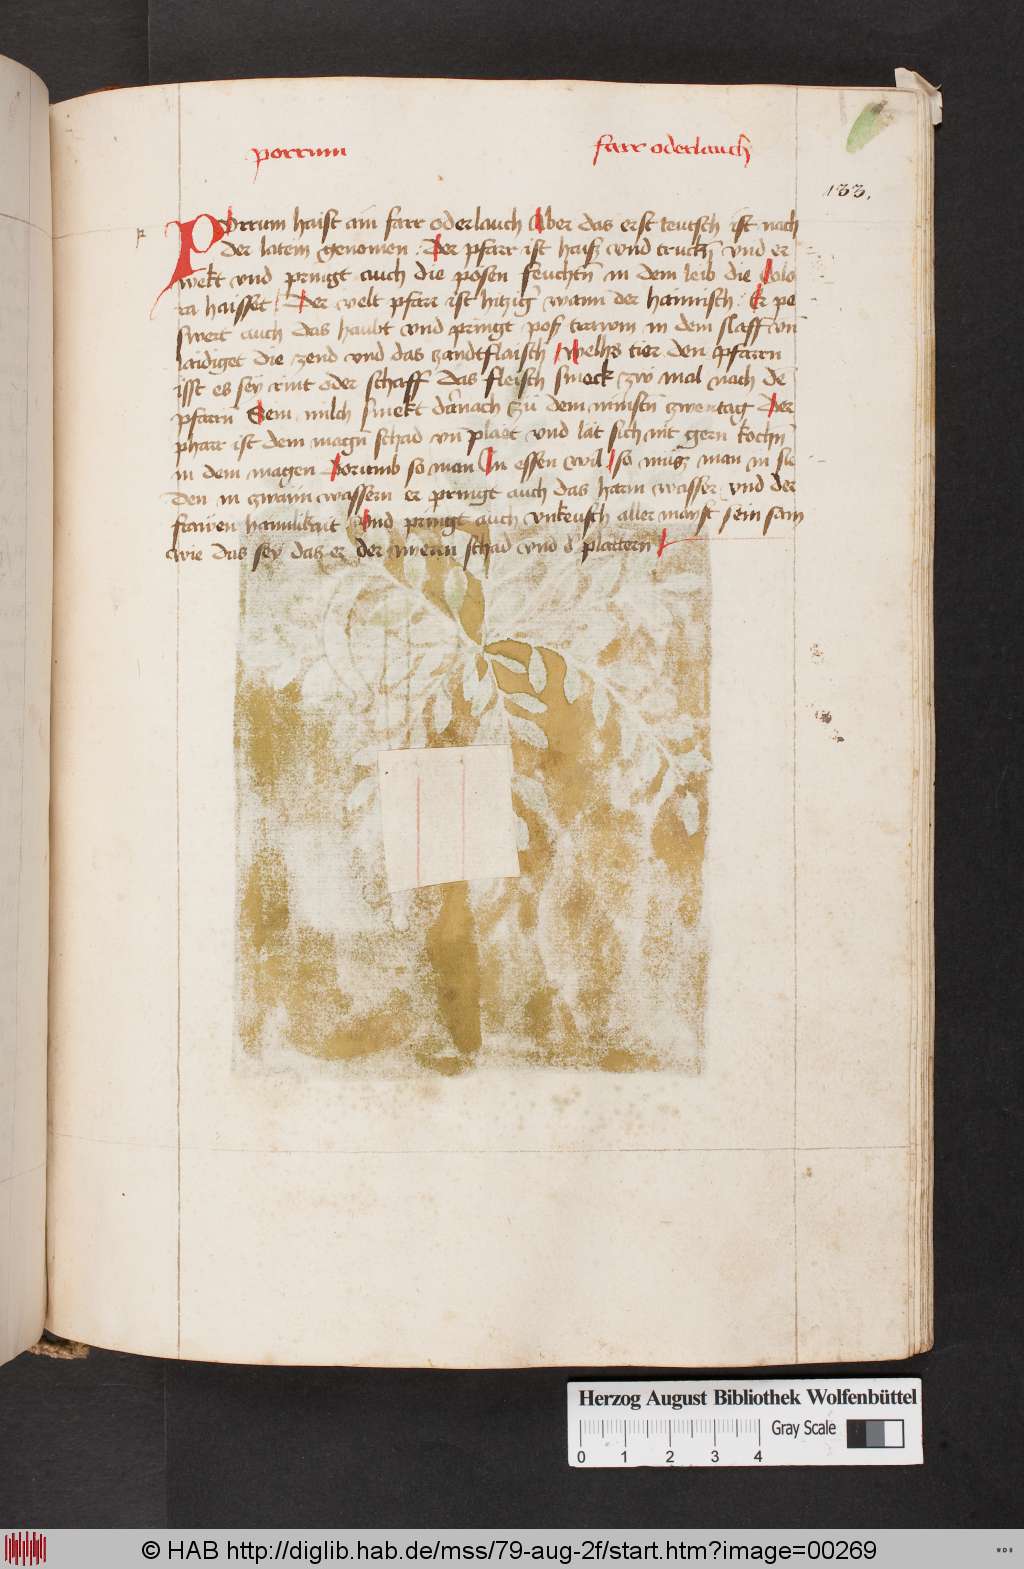 porrum farr oder lauch
133.
Porrum haist ain farr oder lauch Aber das erst teutsch ist nach
der latein genomen · Der pfarr ist haiß vnd truckñ vnd er
wekt vnd pringt auch die posen feuchtñ in dem leib die Colo
ra haisset / Der velt pfarr ist hitziger wann der haimisch · Er pe
swert auch das haubt vnd pringt poß trawm in dem slaff vñ
laidiget die zend vnd das zandtflaisch / welhs tier den pfarrn
isst es sey rint oder schaff das fleisch smeck zwi mal nach dē
pfarrñ Sein milch smekt darnach zu dem minstñ zwen tag Der
pharr ist dem magñ schad vñ plaet vnd lat sich nit gern kochñ
in dem magen Dorumb so man In essen wil / so muß man in sie
den in zwain wassern er pringt auch das harm wasser vnd der
frawen haimlikait Vnd pringt auch vnkeusch aller maist sein sam
wie das sey das er der niern schad vnd d' plattern
Herzog August Bibliothek Wolfenbüttel
Gray Scale
0 1 2 3 4
© HAB http://diglib.hab.de/mss/79-aug-2f/start.htm?image=00269